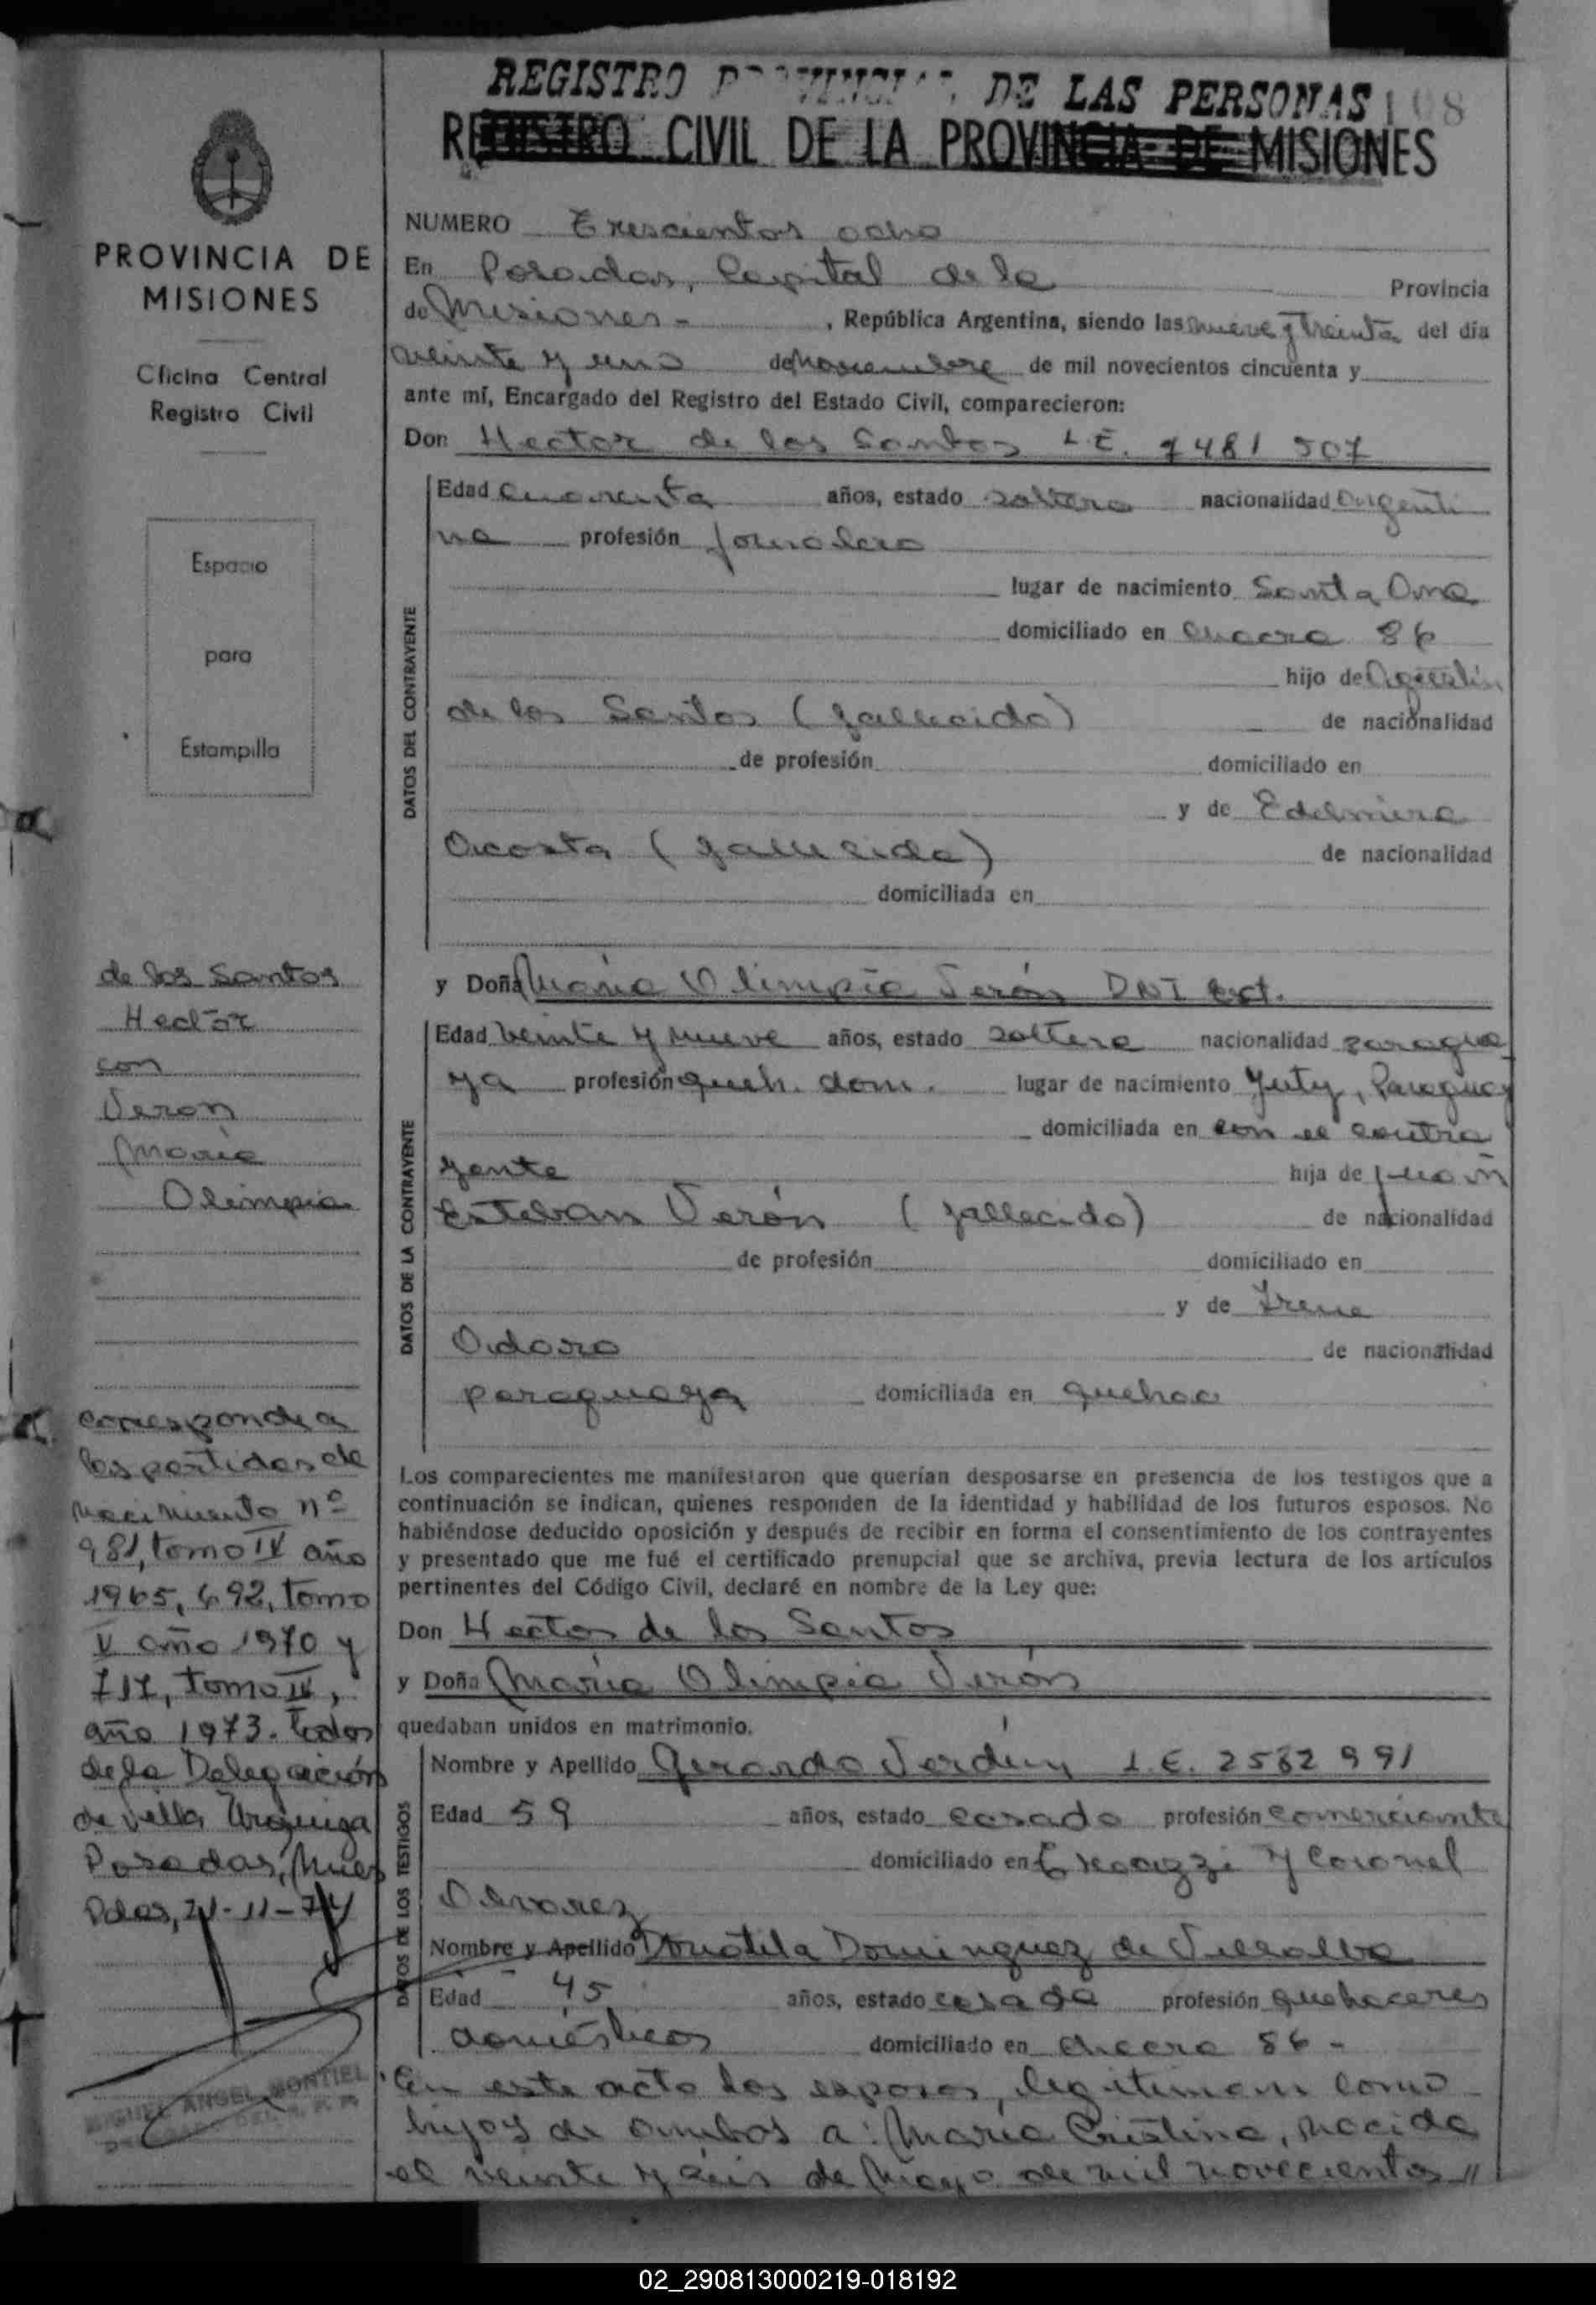 REGISTRO DE LAS PERSONAS 108
REGISTRO CIVIL DE LA PROVINCIA DE MISIONES
PROVINCIA DE
MISIONES
Oficina Central
Registro Civil
Espacio
para
Estampilla
de los Santos
Hector
con
Veron
María
Olimpia
corresponde a
las partidas de
nacimiento nº
981, tomo IV año
1965, 692, tomo
V año 1970 y
717, tomo IV,
año 1973. Todos
de la Delegación
de Villa Urquiza
Posadas, Mnes
Pdas, 21-11-74
MIGUEL ANGEL MONTIEL
NUMERO Trescientos ocho
En Posadas, Capital de la Provincia
de Misiones - , República Argentina, siendo las nueve y treinta del día
veinte y uno de noviembre de mil novecientos cincuenta y
ante mí, Encargado del Registro del Estado Civil, comparecieron:
Don Hector de los Santos L.E. 7481507
DATOS DEL CONTRAYENTE
Edad cuarenta años, estado soltero nacionalidad argenti
na profesión jornalero
lugar de nacimiento Santa Ana
domiciliado en chacra 86
hijo de Agustín
de los Santos (fallecido) de nacionalidad
de profesión domiciliado en
y de Edelmira
Acosta (fallecida) de nacionalidad
domiciliada en
y Doña María Olimpia Verón DNI Ext.
DATOS DE LA CONTRAYENTE
Edad veinte y nueve años, estado soltera nacionalidad paragua
ya profesión queh. dom. lugar de nacimiento Yuty, Paraguay
domiciliada en con el contra
yente hija de Juan
Esteban Verón (fallecido) de nacionalidad
de profesión domiciliado en
y de Irene
de nacionalidad
paraguaya domiciliada en
Los comparecientes me manifestaron que querían desposarse en presencia de los testigos que a
continuación se indican, quienes responden de la identidad y habilidad de los futuros esposos. No
habiéndose deducido oposición y después de recibir en forma el consentimiento de los contrayentes
y presentado que me fué el certificado prenupcial que se archiva, previa lectura de los artículos
pertinentes del Código Civil, declaré en nombre de la Ley que:
Don Hector de los Santos
y Doña María Olimpia Verón
quedaban unidos en matrimonio.
DATOS DE LOS TESTIGOS
Nombre y Apellido Gerardo Verdún L.E. 2582991
Edad 59 años, estado casado profesión comerciante
domiciliado en y Coronel
Alvarez
Nombre y Apellido Domitila Dominguez de Villalba
Edad 45 años, estado casada profesión quehaceres
domésticos domiciliado en chacra 86 -
En este acto los esposos, legitiman como
hijos de ambos a: María Cristina, nacida
el veinte y seis de Mayo de mil novecientos //
02_290813000219-018192